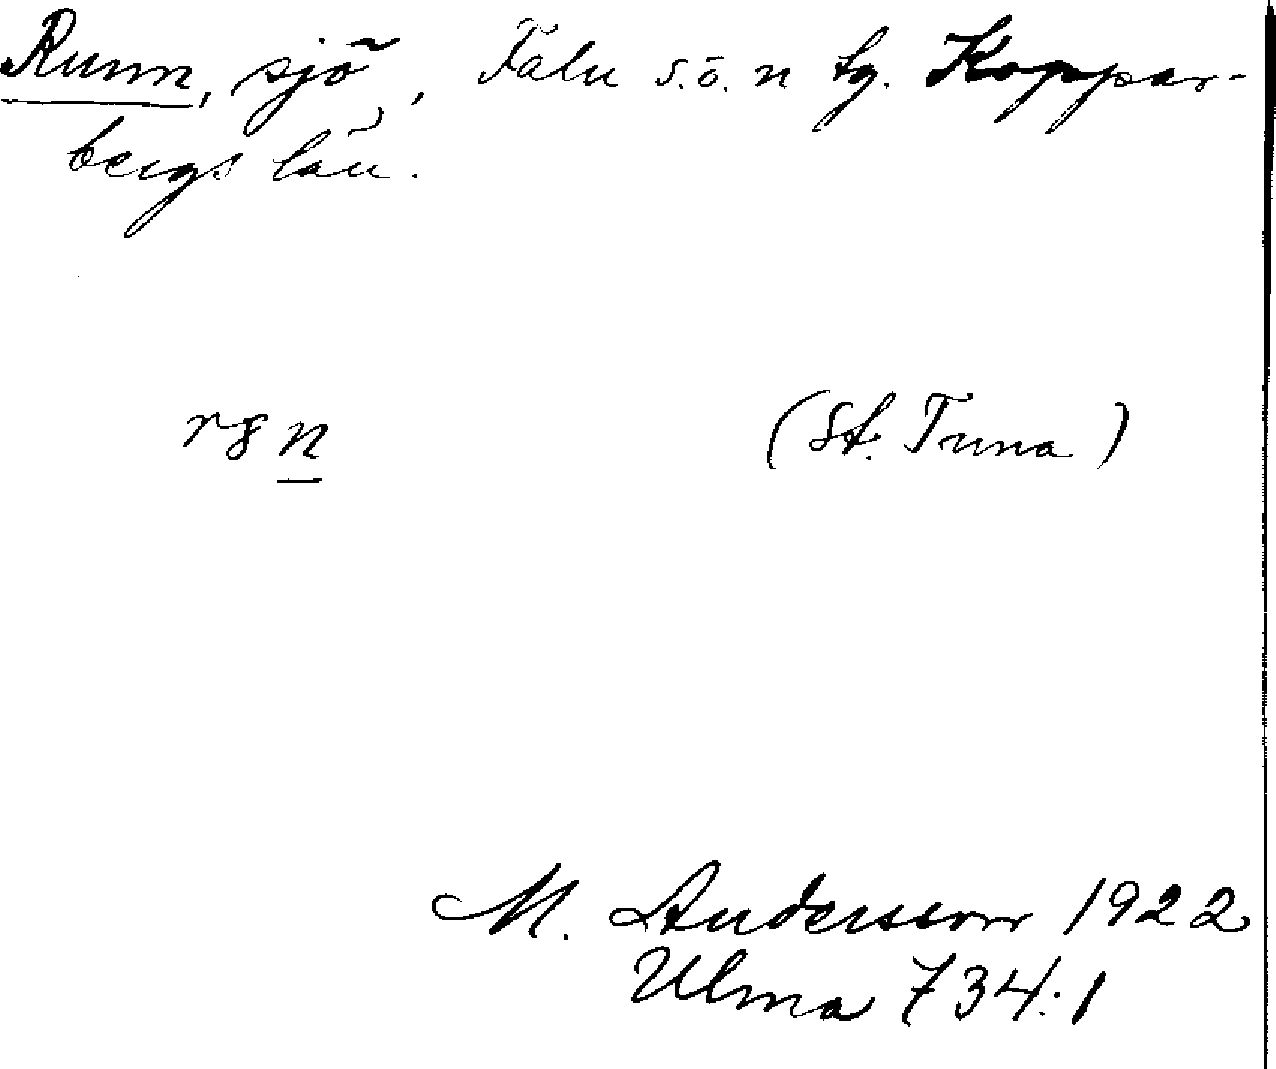 Runn, sjö, Falu s.ö. n tg. Koppar-
bergs län.
(St. Tuna)
M. Andersson 1922
Ulma 734:1